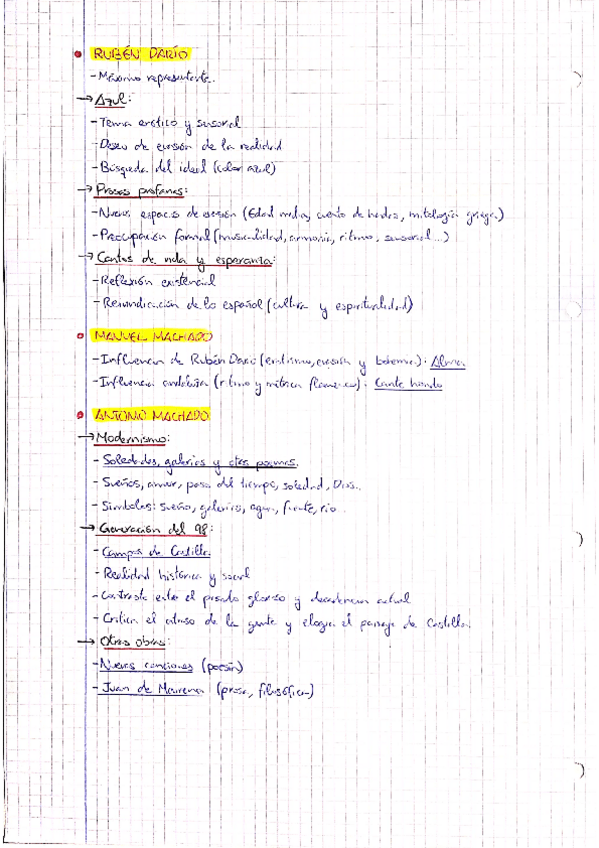 • RUBÉN DARÍO
- Máximo representante.
→ Azul:
- Tema erótico y sensorial
- Deseo de evasión de la realidad
- Búsqueda del ideal (color azul)
→ Prosas profanas:
- Nuevos espacios de evasión (Edad media, cuento de hadas, mitología griega)
- Preocupación formal (musicalidad, armonía, ritmo, sensorial...)
→ Cantos de vida y esperanza:
- Reflexión existencial
- Reivindicación de lo español (cultura y espiritualidad)
• MANUEL MACHADO
- Influencia de Rubén Darío (erotismo, evasión y bohemia). Alma
- Influencia andaluza (ritmo y métrica flamenco). Cante hondo
• ANTONIO MACHADO
→ Modernismo:
- Soledades, galerías y otros poemas.
- Sueños, amor, paso del tiempo, soledad, Dios..
- Símbolos: sueño, galerías, agua, fuente, río...
→ Generación del 98:
- Campos de Castilla.
- Realidad histórica y social
- Contraste entre el pasado glorioso y decadencia actual
- Critica el atraso de la gente y elogia el paisaje de Castilla.
→ Otras obras:
- Nuevas canciones (poesía)
- Juan de Mairena (prosa, filosófica)